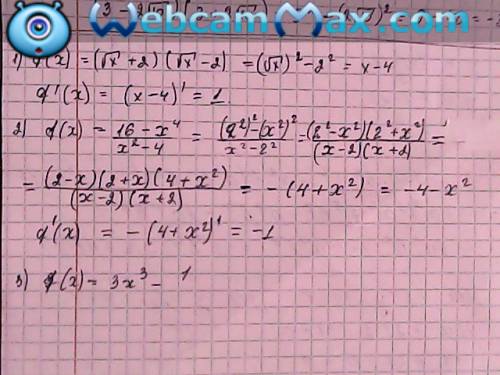 Webcam Max.com
1) f(x) = (√x + 2)(√x - 2) = (√x)² - 2² = x - 4
f'(x) = (x-4)' = 1.
2) f(x) = (16 - x⁴)/(x² - 4) = ((2²)² - (x²)²)/(x² - 2²) = (2² - x²)(2² + x²)/((x-2)(x+2)) =
= (2-x)(2+x)(4+x²)/((x-2)(x+2)) = -(4+x²) = -4-x²
f'(x) = -(4+x²)' = -1
3) f(x) = 3x³ - 1